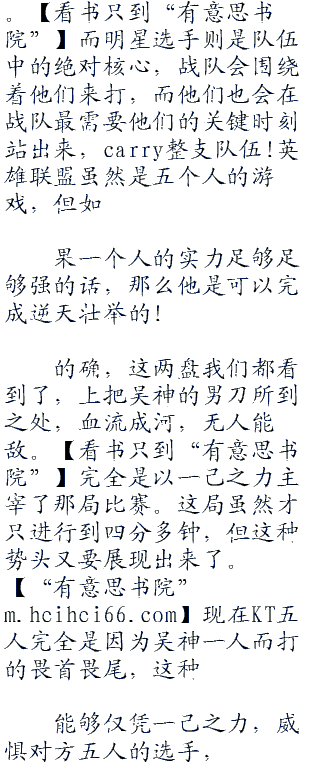 。【看书只到“有意思书
院”】而明星选手则是队伍
中的绝对核心，战队会围绕
着他们来打，而他们也会在
战队最需要他们的关键时刻
站出来，carry整支队伍!英
雄联盟虽然是五个人的游
戏，但如
果一个人的实力足够足
够强的话，那么他是可以完
成逆天壮举的!
的确，这两盘我们都看
到了，上把吴神的男刀所到
之处，血流成河，无人能
敌。【看书只到“有意思书
院”】完全是以一己之力主
宰了那局比赛。这局虽然才
只进行到四分多钟，但这种
势头又要展现出来了。
【“有意思书院”
m.hcihci66.com】现在KT五
人完全是因为吴神一人而打
的畏首畏尾，这种
能够仅凭一己之力，威
惧对方五人的选手，